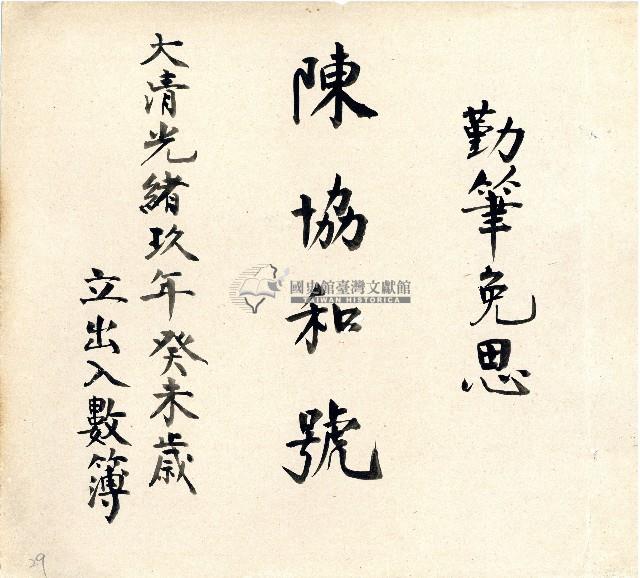 勤筆免思
陳協和號
大清光緒玖年癸未歲
立出入數簿
國史館臺灣文獻館
TAIWAN HISTORICA
29